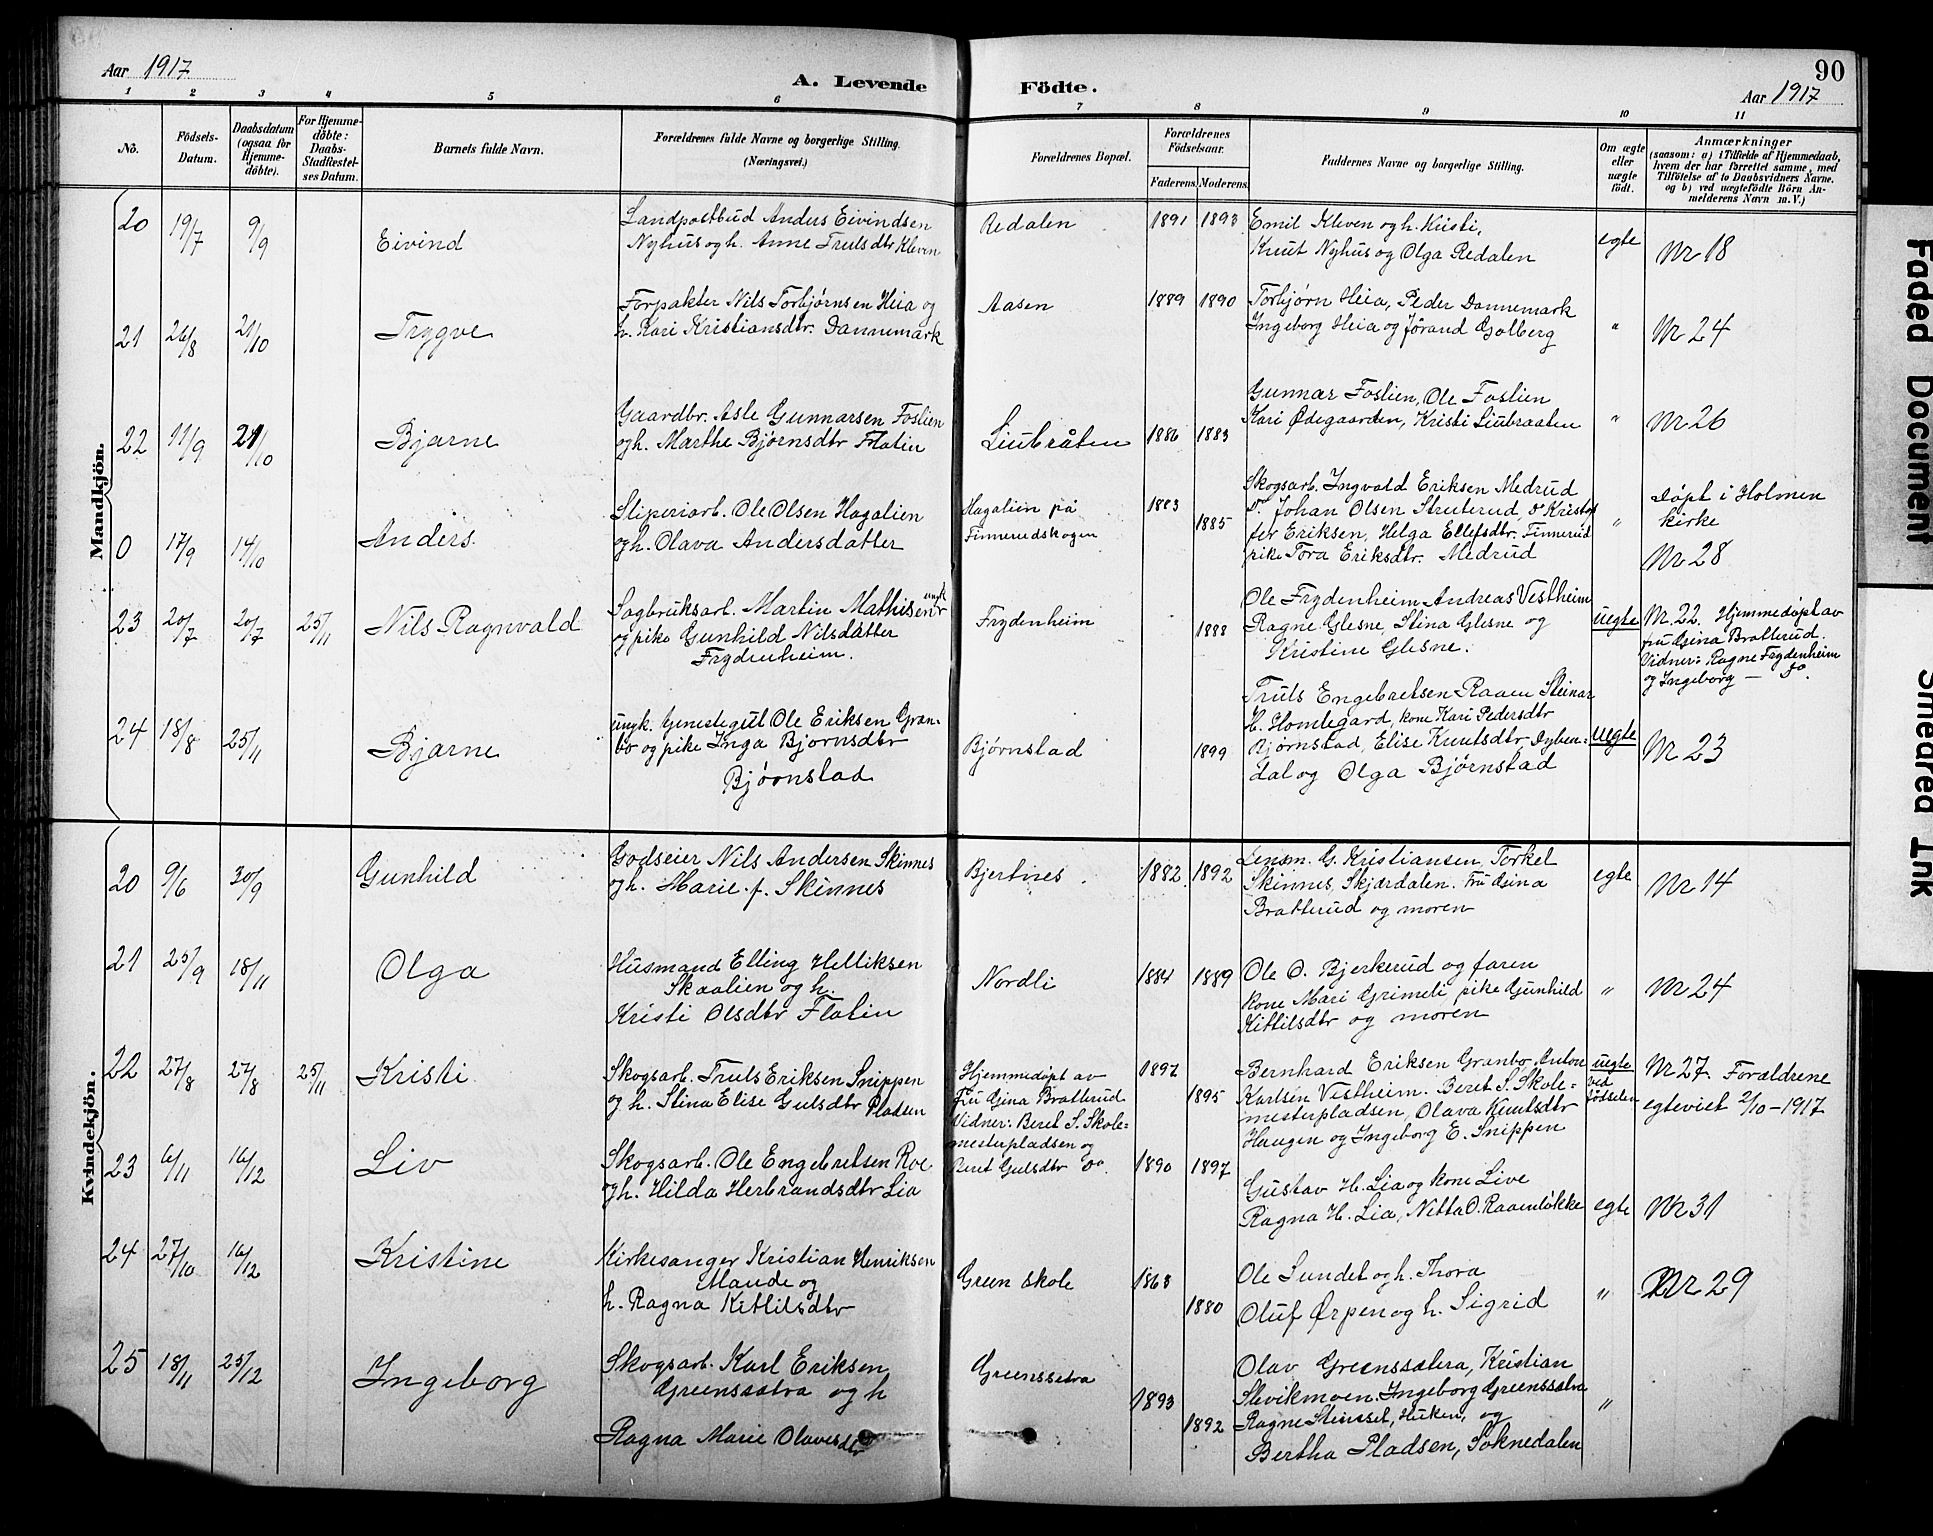 Aar 1917
A. Levende
Födte.
90
Aar 1917
1 2 3 4 5 6 7 8 9 10 11
No.
Födsels-
Datum.
Daabsdatum
(ogsaa for
Hjemme-
döbte).
For Hjemme-
döbte:
Daabs-
Stadfæstel-
ses Datum.
Barnets fulde Navn.
Forældrenes fulde Navne og borgerlige Stilling.
(Næringsvei.)
Forældrenes Bopæl.
Forældrenes
Födselsaar.
Faderens. Moderens.
Faddernes Navne og borgerlige Stilling.
Om ægte
eller
uægte
födt.
Anmærkninger
(saasom: a) i Tilfælde af Hjemmedaab,
hvem der har forrettet samme, med
Tilföielse af to Daabsvidners Navne.
og b) ved uægtefödte Börn An-
melderens Navn m. V.)
Mandkjön.
20 19/7 9/9 Eivind
Landpostbud Anders Eivindsen
Nyhus og h. Anne Trulsdtr Kleven
Redalen 1891 1893
Emil Kleven og h. Kristi,
Knut Nyhus og Olga Redalen
egte Nr 18
21 26/8 21/10 Trygve
Forpakter Nils Torbjørnsen Heia og
h. Kari Kristiansdtr. Dannemark
Aasen 1889 1890
Torbjørn Heia, Peder Dannemark
Ingeborg Heia og Jörand Golberg
" Nr 24
22 11/9 21/10 Bjarne
Gaardbr. Asle Gunnarsen Foslien
og h. Marthe Bjørnsdtr Flatin
Liubråten 1886 1883
Gunnar Foslien, Ole Foslien
Kari Ødegaarden, Kristi Liubraaten
" Nr 26
0 17/9 14/10 Anders
Sliperiarb. Ole Olsen Hagalien
og h. Olava Andersdatter
Hagalien på
Finnerudskogen
1883 1885
Skogsarb. Ingvald Eriksen Medrud
Do Johan Olsen Struterud, Do Kristof
fer Eriksen, Helga Ellefsdtr. Finnerud
pike Tora Eriksdtr. Medrud
"
Döpt i Holmen
kirke
Nr 28
23 20/7 20/7 25/11 Nils Ragnvald
Sagbruksarb. Martin Mathisen ungk
og pike Gunhild Nilsdatter
Frydenheim.
Frydenheim 1888
Ole Frydenheim Andreas Vestheim
Ragne Glesne, Stina Glesne og
Kristine Glesne.
uegte
Nr. 22. Hjemmedøpt av
fru Gina Bratterud.
Vidner: Ragne Frydenheim
og Ingeborg — Do.
24 18/8 25/11 Bjarne
ungk. Ole Eriksen Gran-
bo og pike Inga Bjørnsdtr
Bjørnstad
Bjørnstad 1899
Truls Engebretsen Raaen Steinar
H. Homlegard, kone Kari Pedersdtr
Bjørnstad, Elise Knutsdtr Dyben-
dal og Olga Bjørnstad
uegte Nr 23
Kvindekjön.
20 9/6 30/9 Gunhild
Godseier Nils Andersen Skinnes
og h. Marie f. Skinnes
Bjertnes. 1882 1892
Lensm. G. Kristiansen, Torkel
Skinnes, Skjærdalen. Fru Gina
Bratterud og moren
egte Nr 14
21 25/9 18/11 Olga
Husmand Elling Helliksen
Skaalien og h.
Kristi Olsdtr Flatin
Nordli 1884 1889
Ole O. Bjerkerud og faren
kone Mari Grimeli, pike Gunhild
Kittilsdtr og moren
" Nr 24
22 27/8 27/8 25/11 Kristi
Skogsarb. Truls Eriksen Snippen
og h. Stina Elise Gulsdtr Pladsen
Hjemmedøpt av
Fru Gina Bratterud
Vidner: Beret S. Skole-
mesterpladsen og
Beret Gulsdtr Do.
1897 1895
Bernhard Eriksen Granbo, Anton
Karlsen Vestheim. Beret S. Skole-
mesterpladsen, Olava Knutsdtr
Haugen og Ingeborg E. Snippen
uegte
ved
fødselen
Nr 27. Forældrene
egteviet 2/10-1917
23 6/11 16/12 Liv
Skogsarb. Ole Engebretsen Roe
og h. Hilda Herbrandsdtr Lia
1890 1897
Gustav H. Lia og kone Live
Ragna H. Lia, Nitta O. Raaenløkke
egte Nr 31
24 27/10 16/12 Kristine
Kirkesanger Kristian Henriksen
Mande og
h. Ragna Kittilsdtr
Green skole 1868 1880
Ole Sundet og h. Thora
Oluf Ørpen og h. Sigrid
" Nr 29
25 18/11 25/12 Ingeborg
Skogsarb. Karl Eriksen
Greenssætra og h
Ragna Marie Olavesdtr
Greenssetra 1893 1892
Olav Greenssætra, Kristian
Slevikmoen. Ingeborg Greenssætra
Ragne Stensset, Huken, og
Bertha Pladsen, Soknedalen
"
Faded Document
Smeared Ink